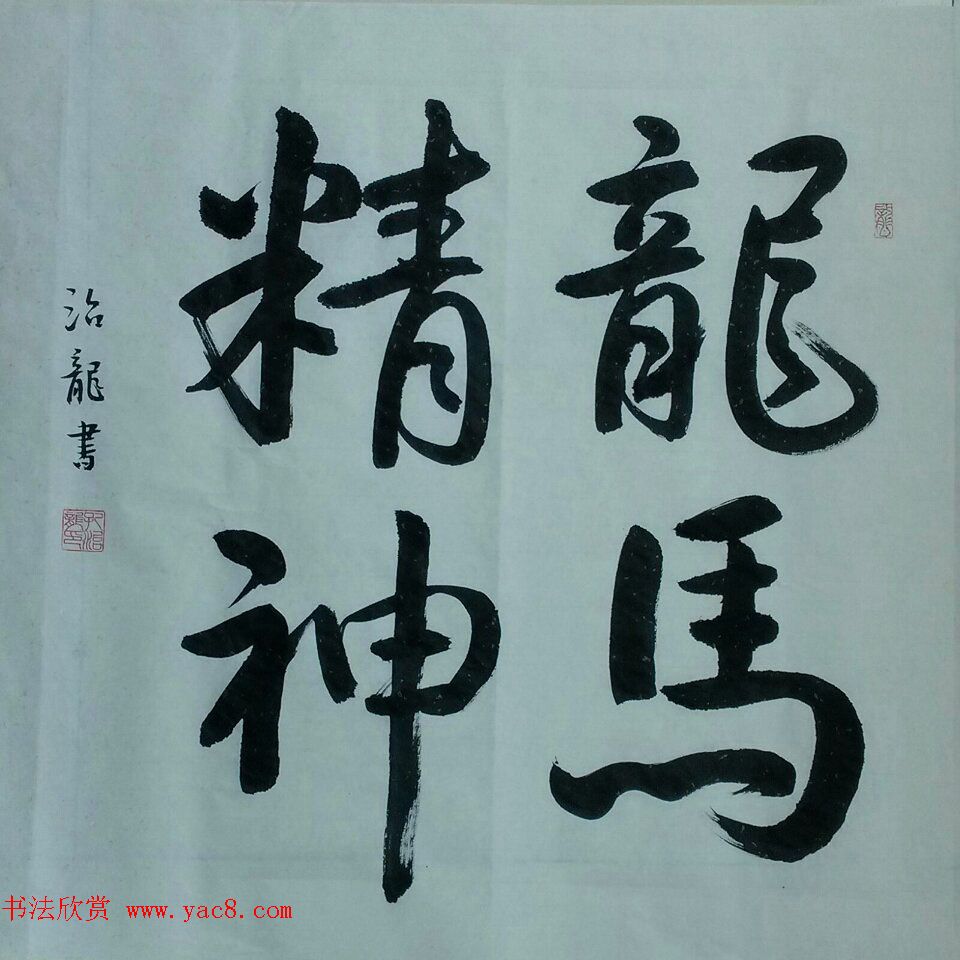 龍馬
精神
治龍書
书法欣赏 www.yac8.com